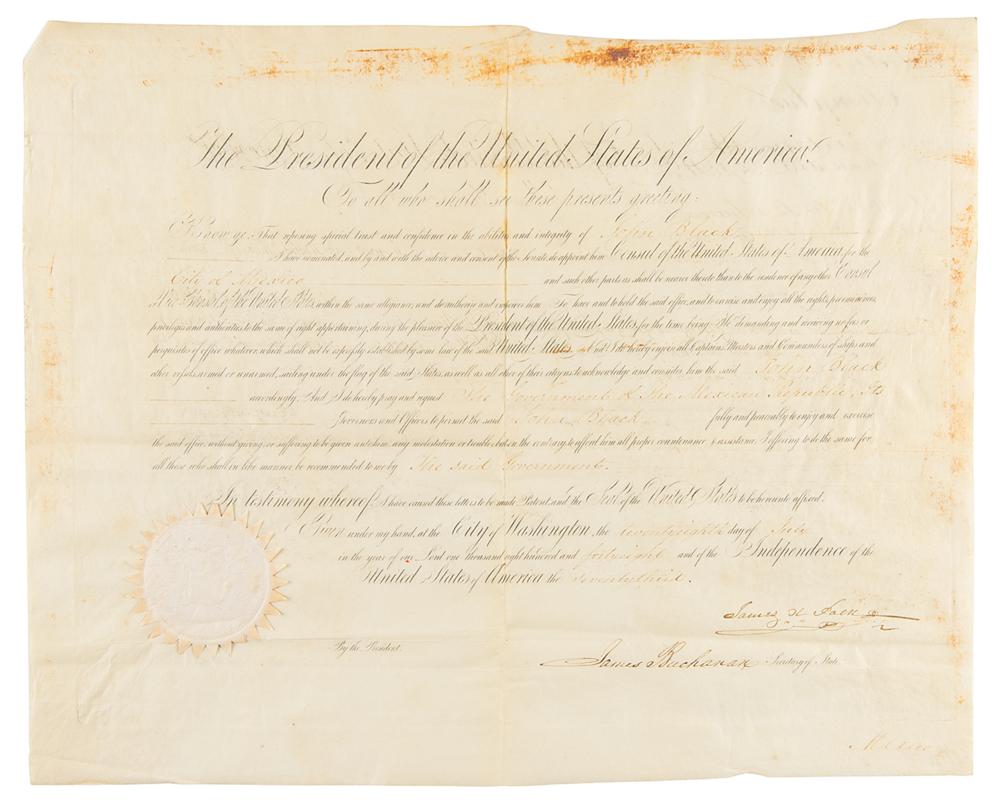 The President of the United States of America,
To all who shall see these presents greeting:
Know ye, That reposing special trust and confidence in the abilities and integrity of John Black
I have nominated, and by and with the advice and consent of the Senate do appoint him Consul of the United States of America for the
City of Mexico and such other parts as shall be nearer thereto than to the residence of any other Consul
or Vice Consul of the United States, within the same allegiance; and do authorize and empower him To have and to hold the said office, and to exercise and enjoy all the rights, preeminences,
privileges and authorities to the same of right appertaining, during the pleasure of the President of the United States, for the time being: He demanding and receiving no fees or
perquisites of office whatever, which shall not be expressly established by some law of the said United States. And I do hereby enjoin all Captains, Masters and Commanders of ships and
other vessels, armed or unarmed, sailing under the flag of the said States, as well as all other of their citizens, to acknowledge and consider him the said John Black
accordingly. And I do hereby pray and request The Government of the Mexican Republic, Its
Governors and Officers to permit the said John Black fully and peaceably to enjoy and exercise
the said office, without giving, or suffering to be given unto him, any molestation or trouble, but on the contrary, to afford him all proper countenance & assistance; I offering to do the same for
all those who shall in like manner be recommended to me by The said Government.
In testimony whereof, I have caused these letters to be made Patent, and the Seal of the United States to be hereunto affixed.
Given under my hand, at the City of Washington, the twentyeighth day of July
in the year of our Lord one thousand eight hundred and fortyeight and of the Independence of the
United States of America the Seventythird.
James K Polk
By the President.
James Buchanan Secretary of State.
Mexico